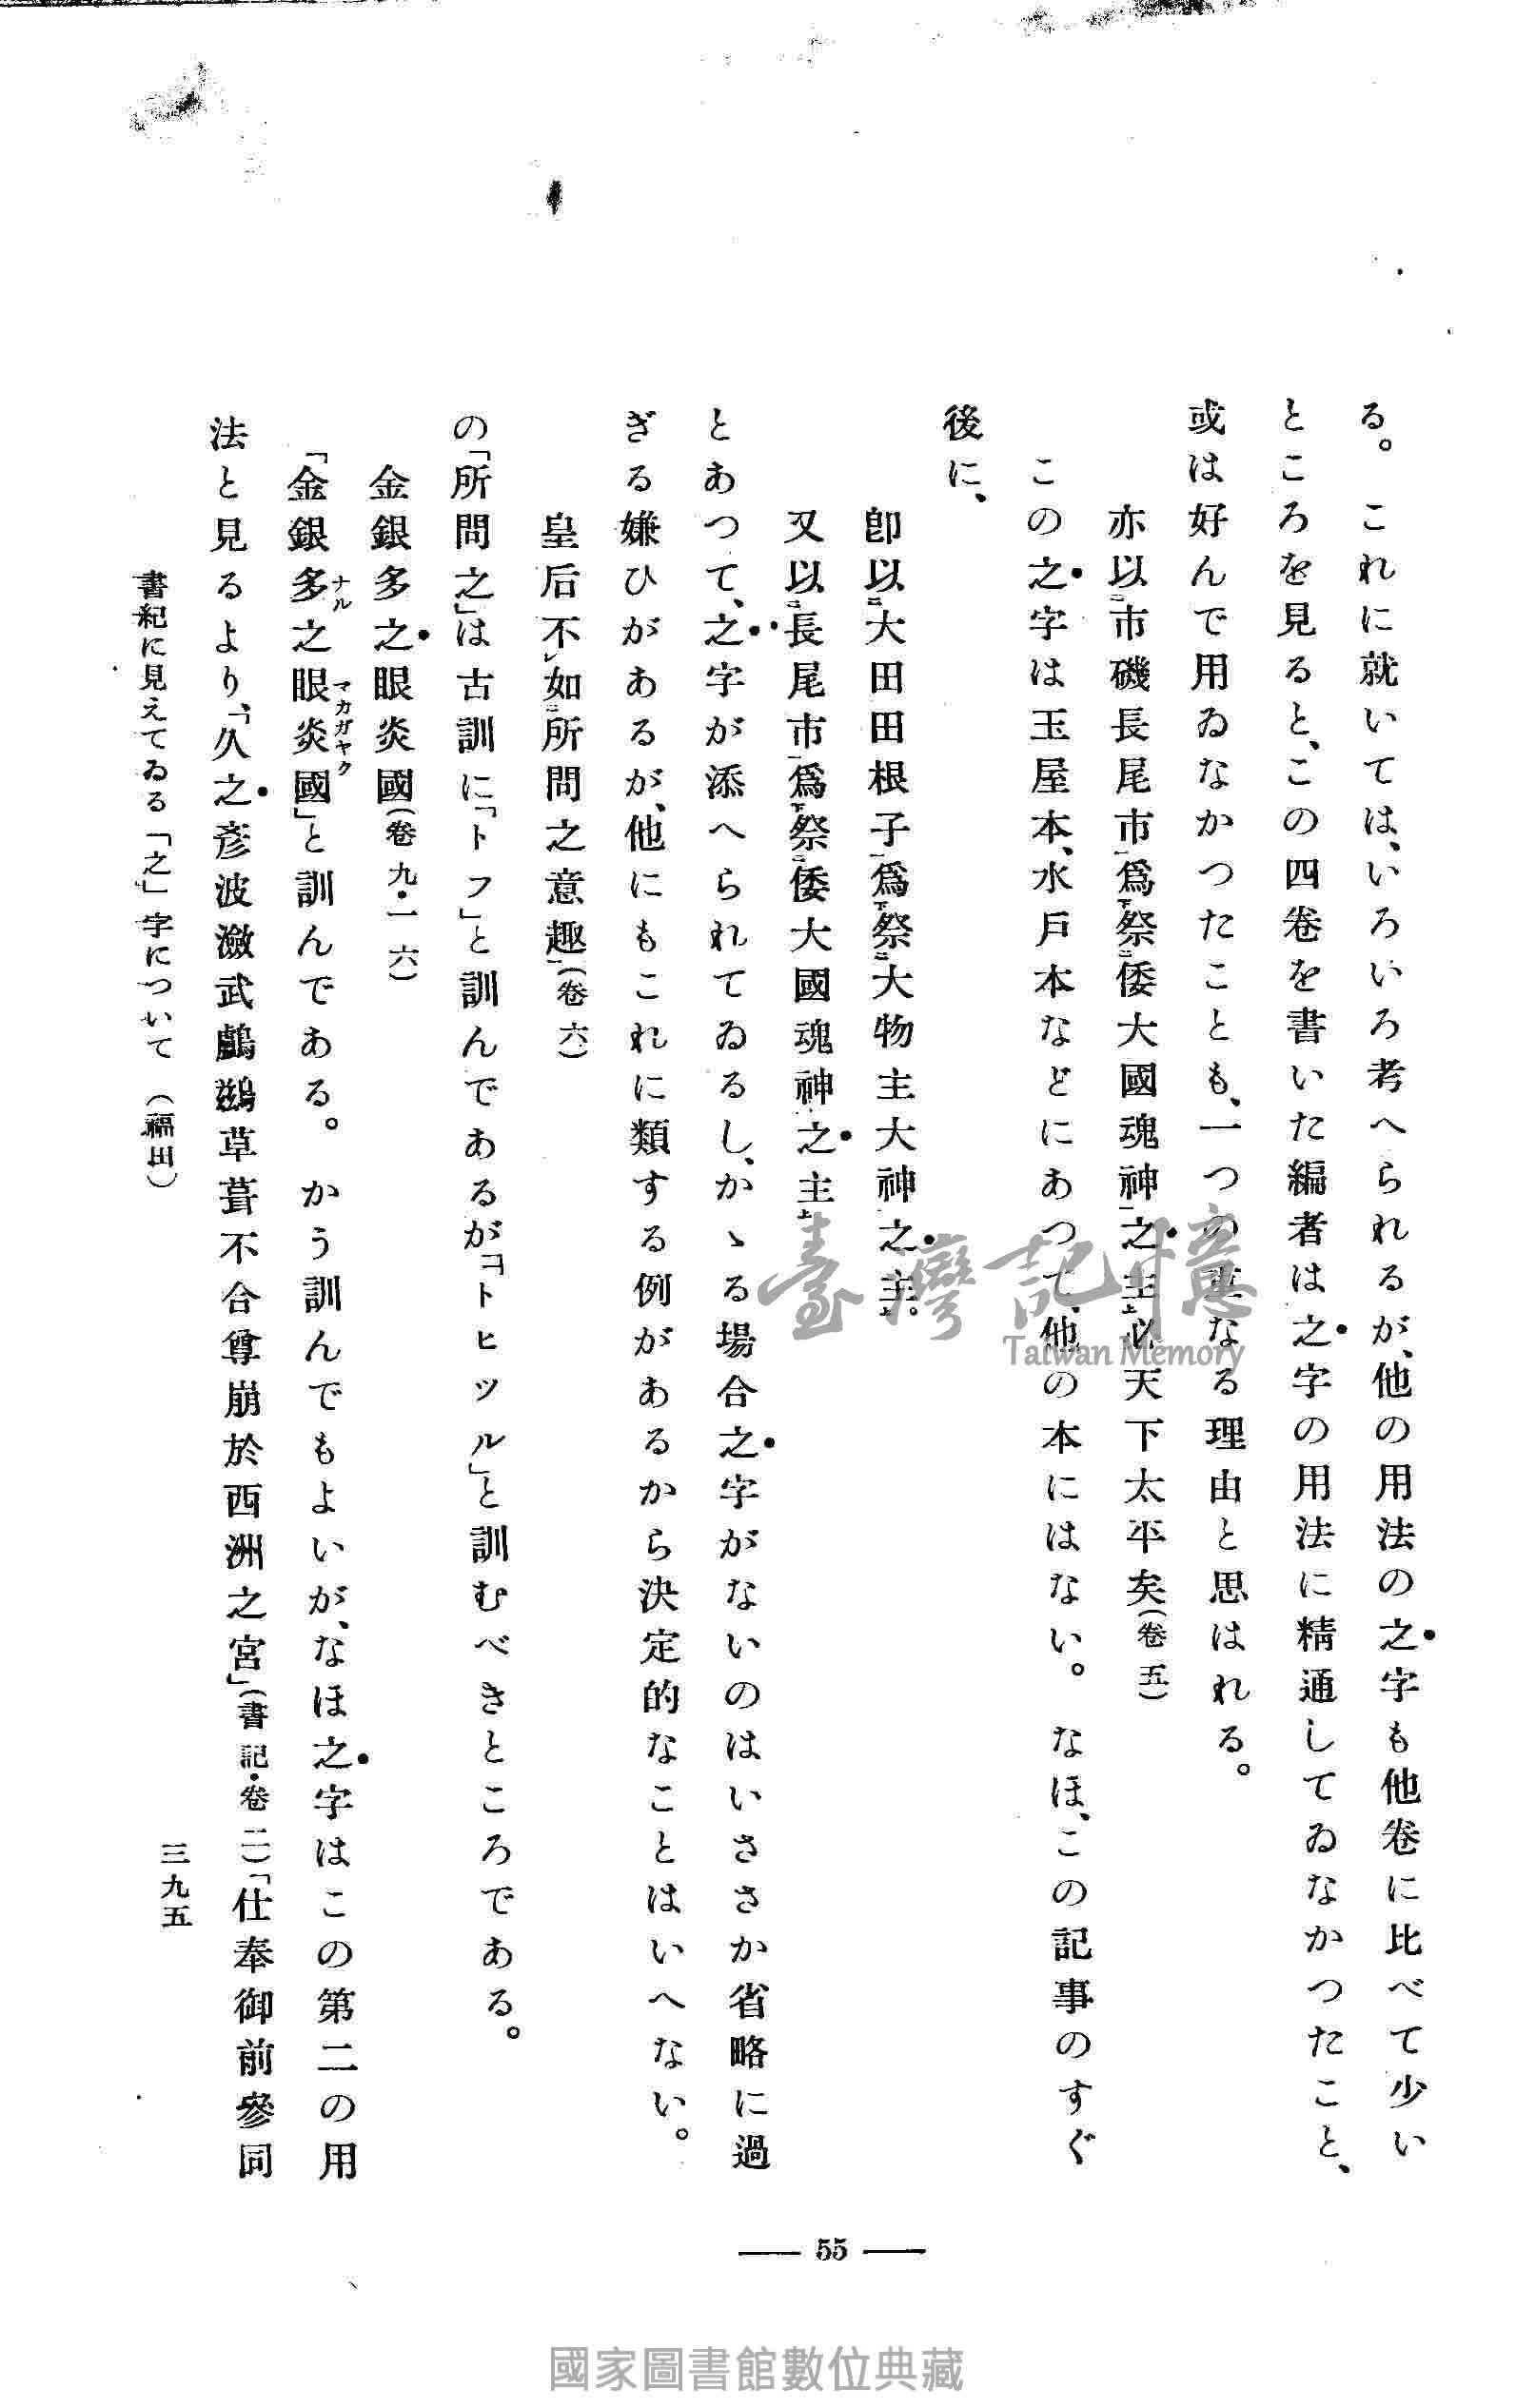 る。これに就いては、いろいろ考へられるが、他の用法の之字も他卷に比べて少い
ところを見ると、この四卷を書いた編者は之字の用法に精通してゐなかつたこと、
或は好んで用ゐなかつたことも、一つの重なる理由と思はれる。
亦以㆓市磯長尾市㆒爲㆘祭㆓倭大國魂神㆒之主㆖必天下太平矣(卷五)
この之字は玉屋本、水戸本などにあつて、他の本にはない。なほ、この記事のすぐ
後に、
卽以㆓大田田根子㆒爲㆘祭㆓大物主大神㆒之主㆖。
又以㆓長尾市㆒爲㆘祭㆓倭大國魂神之主㆖
とあつて、之字が添へられてゐるし、かゝる場合之字がないのはいささか省略に過
ぎる嫌ひがあるが、他にもこれに類する例があるから決定的なことはいへない。
皇后不㆑如㆓所問之意趣㆒(卷六)
の「所問之」は古訓に「トフ」と訓んであるが「コトヒツル」と訓むべきところである。
金銀多之眼炎國(卷九・一六)
「金銀多之眼炎國」と訓んである。かう訓んでもよいが、なほ之字はこの第二の用
ナル マカガヤク
法と見るより、「久之彥波瀲武鸕鷀草葺不合尊崩於西洲之宮」(書記・卷二)「仕奉御前參同
書紀に見えてゐる「之」字について (福田)
三九五
55
臺灣記憶
Taiwan Memory
國家圖書館數位典藏